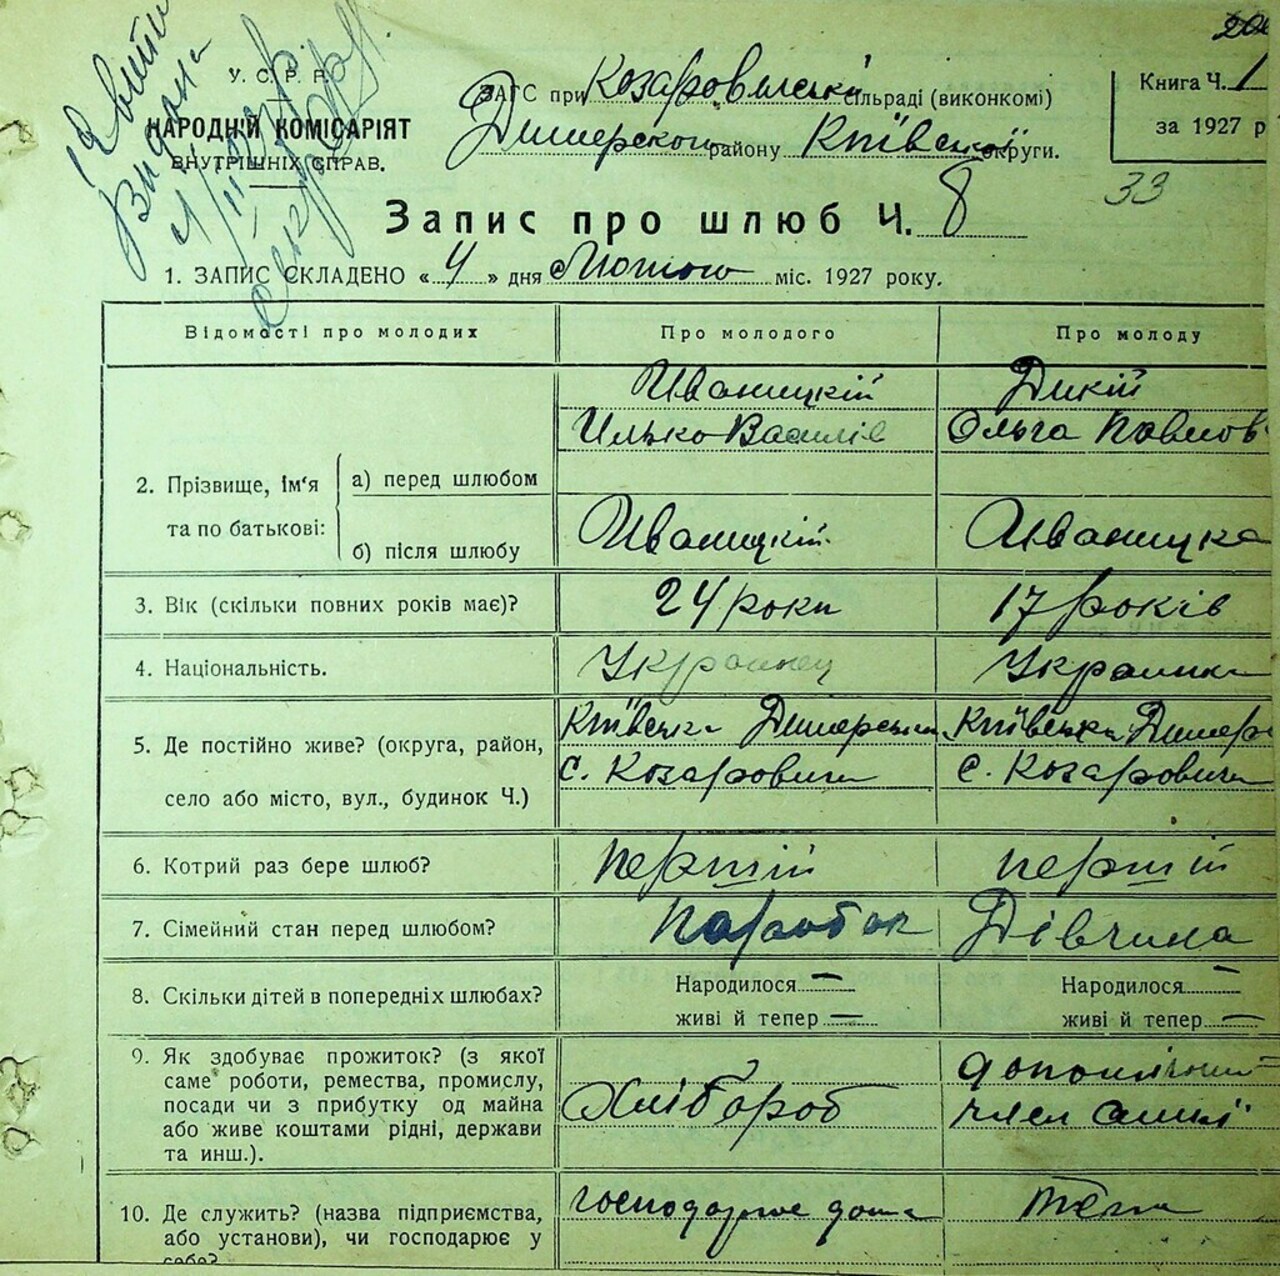 206
У. С. Р. Р.
НАРОДНІЙ КОМІСАРІЯТ
ВНУТРІШНІХ СПРАВ.
ЗАГС при Козаровыцькій сільраді (виконкомі)
Димерского району Київської округи.
Книга Ч. 1
за 1927 р
33
Запис про шлюб Ч. 8
1. ЗАПИС СКЛАДЕНО « 4 » дня Лютого міс. 1927 року.
Відомості про молодих Про молодого Про молоду
Иваницкій Дикій
Илько Василів Ольга Павлов
2. Прізвище, ім'я та по батькові:
а) перед шлюбом
б) після шлюбу Иваницкій Иваницка
3. Вік (скільки повних років має)? 24 роки 17 років
4. Національність. Украинец Украинка
5. Де постійно живе? (округа, район, Київська Димерський Київська Димер
с. Козаровичи с. Козаровичи
село або місто, вул., будинок Ч.)
6. Котрий раз бере шлюб? першій першій
7. Сімейний стан перед шлюбом? Паробок Дівчина
8. Скільки дітей в попередніх шлюбах? Народилося — Народилося —
живі й тепер — живі й тепер —
9. Як здобуває прожиток? (з якої
саме роботи, ремества, промислу,
посади чи з прибутку од майна
або живе коштами рідні, держави
та инш.).
Хлібороб
член
10. Де служить? (назва підприємства, господарює дома теж
або установи), чи господарює у
себе?